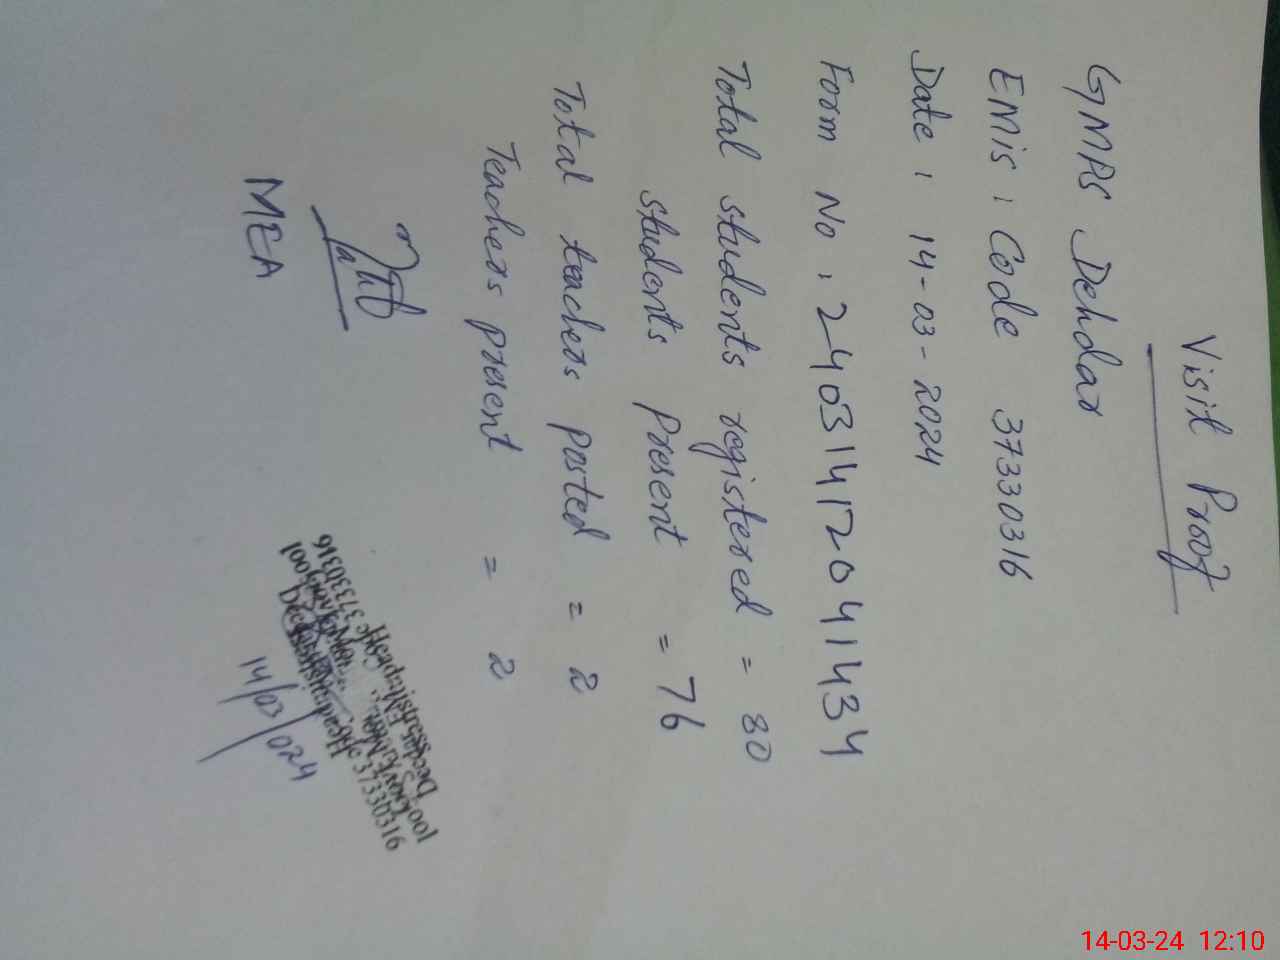 Visit Proof
GMPS Dehdar
EMis : Code 37330316
Date : 14-03-2024
Form No : 2403141204 1434
Total students registered = 80
students present = 76
Total teachers posted = 2
Teachers present = 2
MEA
Headmaster
37330316
14/03/024
14-03-24 12:10